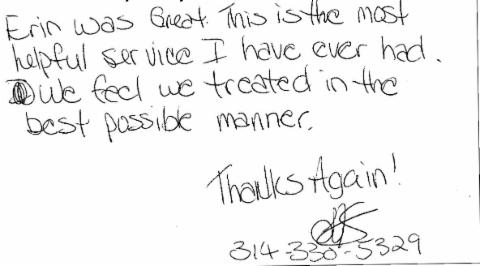 Erin was Great. This is the most
helpful service I have ever had.
We feel we treated in the
best possible manner.
Thanks Again!
314-330-5329